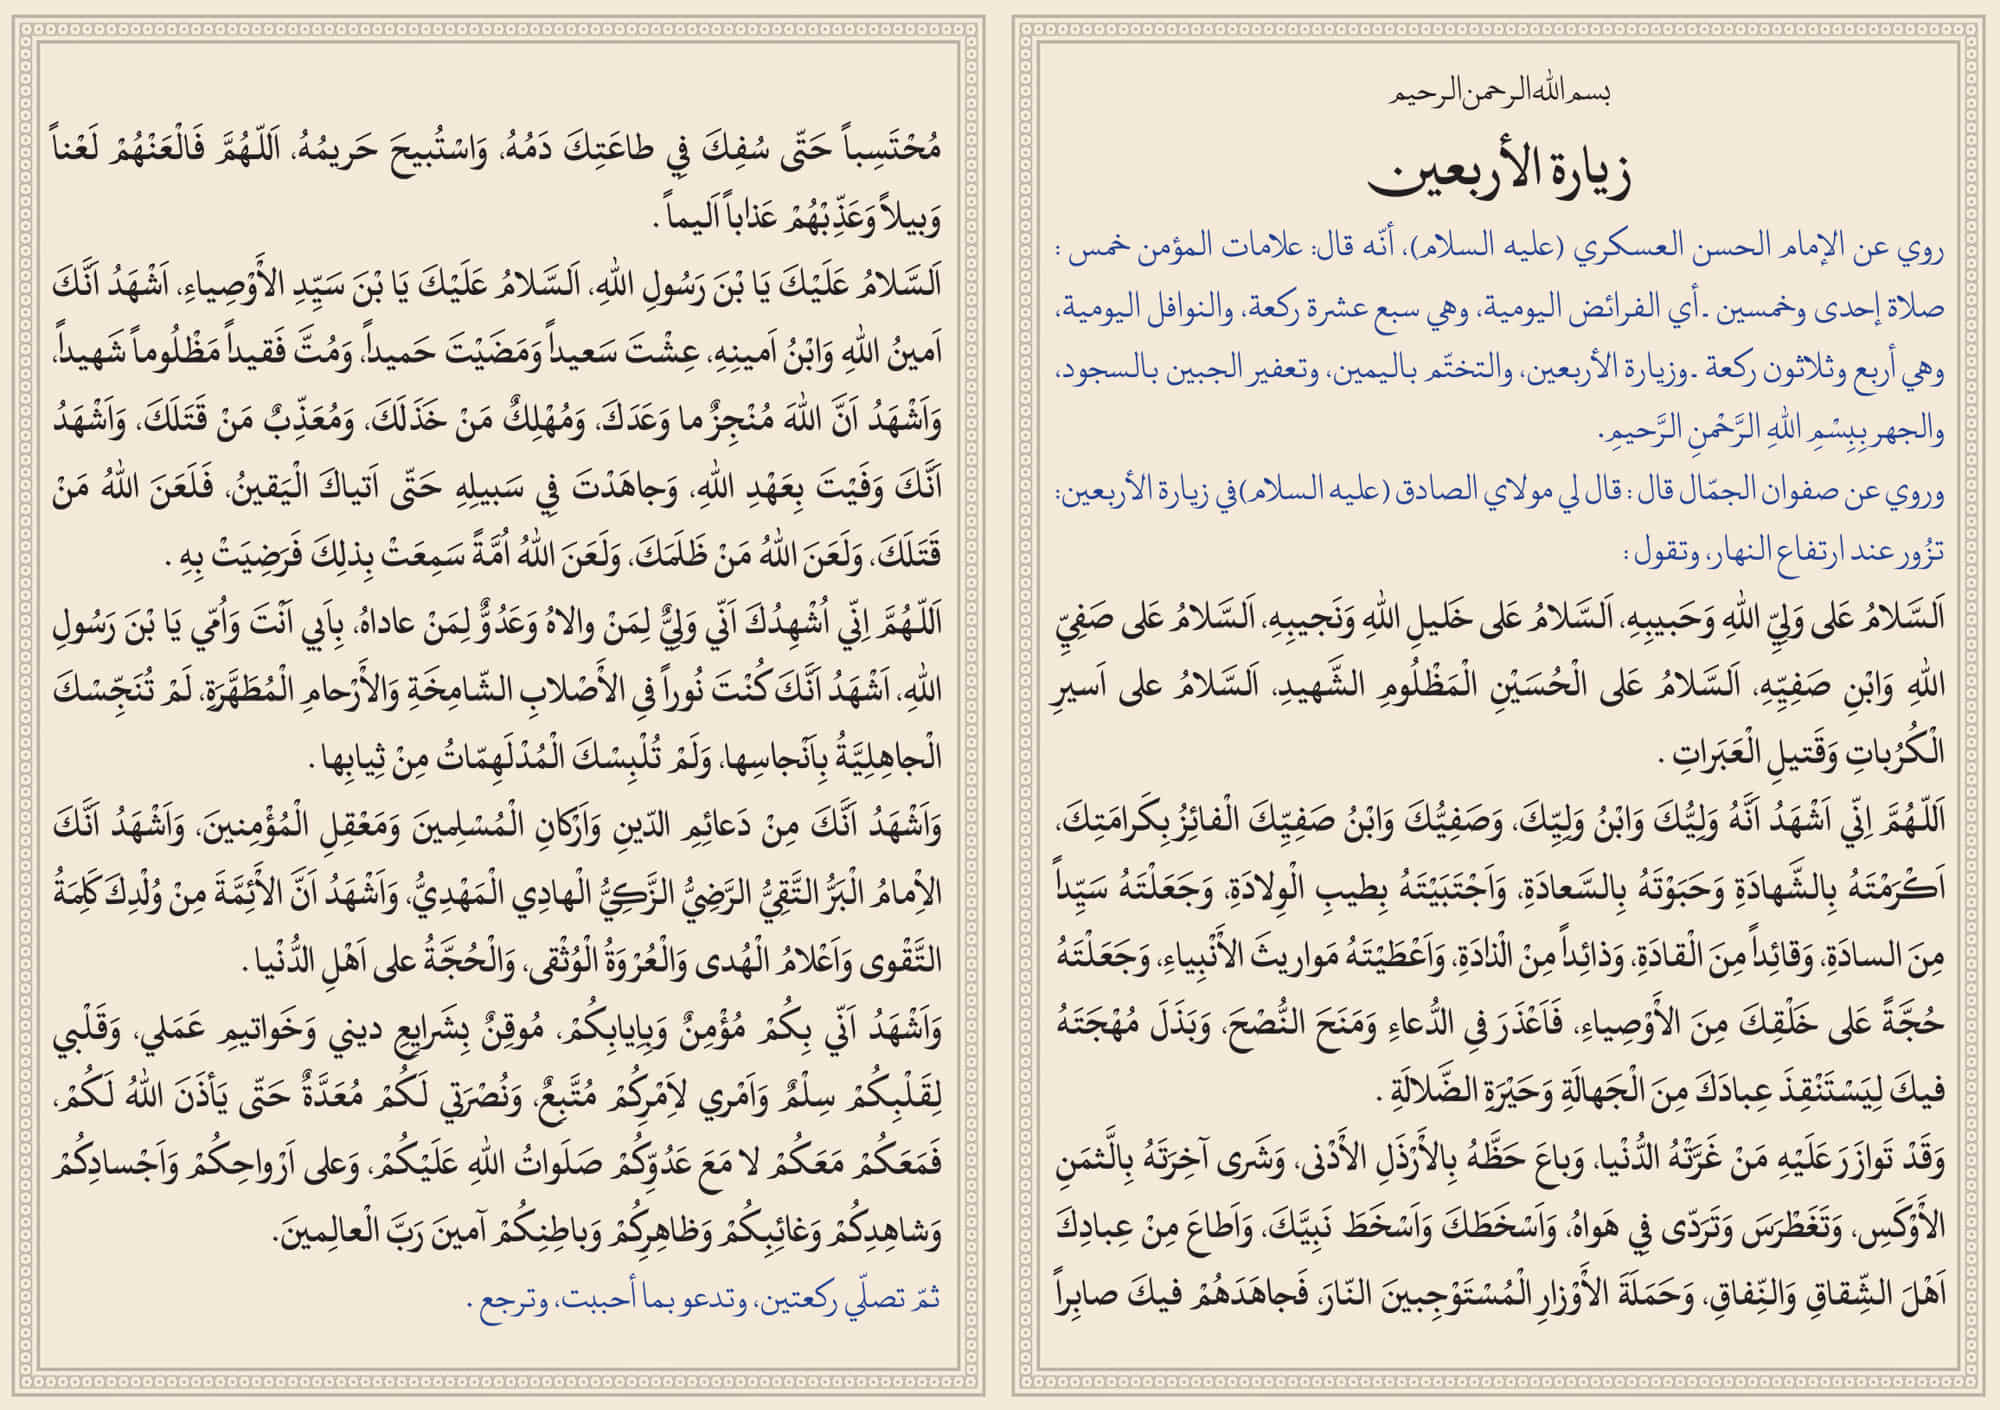 بسم الله الرحمن الرحيم
زيارة الأربعين
روي عن الإمام الحسن العسكري (عليه السلام)، أنّه قال: علامات المؤمن خمس :
صلاة إحدى وخمسين ـ أي الفرائض اليومية، وهي سبع عشرة ركعة، والنوافل اليومية،
وهي أربع وثلاثون ركعة ـ وزيارة الأربعين، والتختّم باليمين، وتعفير الجبين بالسجود،
والجهر بِبِسْمِ اللهِ الرَّحْمنِ الرَّحيمِ.
وروي عن صفوان الجمّال قال : قال لي مولاي الصادق (عليه السلام)في زيارة الأربعين:
تزُور عند ارتفاع النهار، وتقول :
اَلسَّلامُ عَلى وَلِيِّ اللهِ وَحَبيبِهِ، اَلسَّلامُ عَلى خَليلِ اللهِ وَنَجيبِهِ، اَلسَّلامُ عَلى صَفِيِّ
اللهِ وَابْنِ صَفِيِّهِ، اَلسَّلامُ عَلى الْحُسَيْنِ الْمَظْلُومِ الشَّهيدِ، اَلسَّلامُ على اَسيرِ
الْكُرُباتِ وَقَتيلِ الْعَبَراتِ .
اَللّـهُمَّ اِنّي اَشْهَدُ اَنَّهُ وَلِيُّكَ وَابْنُ وَلِيِّكَ، وَصَفِيُّكَ وَابْنُ صَفِيِّكَ الْفائِزُ بِكَرامَتِكَ،
اَكْرَمْتَهُ بِالشَّهادَةِ وَحَبَوْتَهُ بِالسَّعادَةِ، وَاَجْتَبَيْتَهُ بِطيبِ الْوِلادَةِ، وَجَعَلْتَهُ سَيِّداً
مِنَ السادَةِ، وَقائِداً مِنَ الْقادَةِ، وَذائِداً مِنْ الْذادَةِ، وَاَعْطَيْتَهُ مَواريثَ الأَنْبِياءِ، وَجَعَلْتَهُ
حُجَّةً عَلى خَلْقِكَ مِنَ الأَوْصِياءِ، فَاَعْذَرَ فىِ الدُّعاءِ وَمَنَحَ النُّصْحَ، وَبَذَلَ مُهْجَتَهُ
فيكَ لِيَسْتَنْقِذَ عِبادَكَ مِنَ الْجَهالَةِ وَحَيْرَةِ الضَّلالَةِ .
وَقَدْ تَوازَرَ عَلَيْهِ مَنْ غَرَّتْهُ الدُّنْيا، وَباعَ حَظَّهُ بِالأَرْذَلِ الأَدْنى، وَشَرى آخِرَتَهُ بِالَّثمَنِ
الأَوْكَسِ، وَتَغَطْرَسَ وَتَرَدّى فِي هَواهُ، وَاَسْخَطَكَ وَاَسْخَطَ نَبِيَّكَ، وَاَطاعَ مِنْ عِبادِكَ
اَهْلَ الشِّقاقِ وَالنِّفاقِ، وَحَمَلَةَ الأَوْزارِ الْمُسْتَوْجِبينَ النّارَ، فَجاهَدَهُمْ فيكَ صابِراً
مُحْتَسِباً حَتّى سُفِكَ فِي طاعَتِكَ دَمُهُ، وَاسْتُبيحَ حَريمُهُ، اَللّـهُمَّ فَالْعَنْهُمْ لَعْناً
وَبيلاً وَعَذِّبْهُمْ عَذاباً اَليماً .
اَلسَّلامُ عَلَيْكَ يَا بْنَ رَسُولِ اللهِ، اَلسَّلامُ عَلَيْكَ يَا بْنَ سَيِّدِ الأَوْصِياءِ، اَشْهَدُ اَنَّكَ
اَمينُ اللهِ وَابْنُ اَمينِهِ، عِشْتَ سَعيداً وَمَضَيْتَ حَميداً، وَمُتَّ فَقيداً مَظْلُوماً شَهيداً،
وَاَشْهَدُ اَنَّ اللهَ مُنْجِزٌ ما وَعَدَكَ، وَمُهْلِكٌ مَنْ خَذَلَكَ، وَمُعَذِّبٌ مَنْ قَتَلَكَ، وَاَشْهَدُ
اَنَّكَ وَفَيْتَ بِعَهْدِ اللهِ، وَجاهَدْتَ فِي سَبيلِهِ حَتّى اَتياكَ الْيَقينُ، فَلَعَنَ اللهُ مَنْ
قَتَلَكَ، وَلَعَنَ اللهُ مَنْ ظَلَمَكَ، وَلَعَنَ اللهُ اُمَّةً سَمِعَتْ بِذلِكَ فَرَضِيَتْ بِهِ .
اَللّـهُمَّ اِنّي اُشْهِدُكَ اَنّي وَلِيٌّ لِمَنْ والاهُ وَعَدُوٌّ لِمَنْ عاداهُ، بِاَبي اَنْتَ وَاُمّي يَا بْنَ رَسُولِ
اللهِ، اَشْهَدُ اَنَّكَ كُنْتَ نُوراً فىِ الأَصْلابِ الشّامِخَةِ وَالأَرْحامِ الْمُطَهَّرَةِ، لَمْ تُنَجِّسْكَ
الْجاهِلِيَّةُ بِاَنْجاسِها، وَلَمْ تُلْبِسْكَ الْمُدْلَهِمّاتُ مِنْ ثِيابِها .
وَاَشْهَدُ اَنَّكَ مِنْ دَعائِمِ الدّينِ وَاَرْكانِ الْمُسْلِمينَ وَمَعْقِلِ الْمُؤْمِنينَ، وَاَشْهَدُ اَنَّكَ
الاِْمامُ الْبَرُّ التَّقِيُّ الرَّضِيُّ الزَّكِيُّ الْهادِي الْمَهْدِيُّ، وَاَشْهَدُ اَنَّ الأَئِمَّةَ مِنْ وُلْدِكَ كَلِمَةُ
التَّقْوى وَاَعْلامُ الْهُدى وَالْعُرْوَةُ الْوُثْقى، وَالْحُجَّةُ على اَهْلِ الدُّنْيا .
وَاَشْهَدُ اَنّي بِكُمْ مُؤْمِنٌ وَبِاِيابِكُمْ، مُوقِنٌ بِشَرايِعِ ديني وَخَواتيمِ عَمَلي، وَقَلْبي
لِقَلْبِكُمْ سِلْمٌ وَاَمْري لاَِمْرِكُمْ مُتَّبِعٌ، وَنُصْرَتي لَكُمْ مُعَدَّةٌ حَتّى يَأذَنَ اللهُ لَكُمْ،
فَمَعَكُمْ مَعَكُمْ لا مَعَ عَدُوِّكُمْ صَلَواتُ اللهِ عَلَيْكُمْ، وَعلى اَرْواحِكُمْ وَاَجْسادِكُمْ
وَشاهِدِكُمْ وَغائِبِكُمْ وَظاهِرِكُمْ وَباطِنِكُمْ آمينَ رَبَّ الْعالِمينَ.
ثمّ تصلّي ركعتين، وتدعو بما أحببت، وترجع .